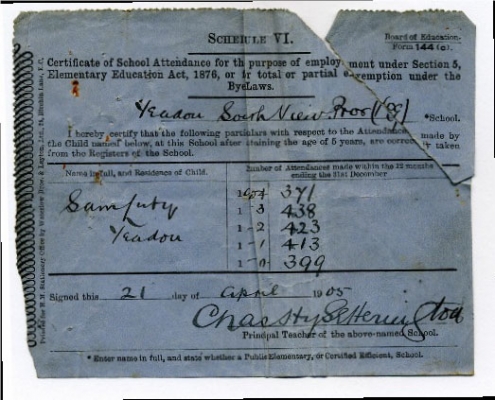 SCHEDULE VI.
Board of Education.
Form 144 (c).
Certificate of School Attendance for the purpose of employment under Section 5,
Elementary Education Act, 1876, or for total or partial exemption under the
ByeLaws.
Yeadon South View. Prov *School.
I hereby certify that the following particulars with respect to the Attendance made by
the Child named below, at this School after attaining the age of 5 years, are correctly taken
from the Registers of the School.
Name in full, and Residence of Child.
Number of Attendances made within the 12 months
ending the 31st December
Sam
Yeadon
1904 371
1 - 3 438
1 - 2 423
1 - 1 413
1 - 0 399
Signed this 21 day of April 1905
Chas Hy Hetherington
Principal Teacher of the above-named School.
* Enter name in full, and state whether a Public Elementary, or Certified Efficient, School.